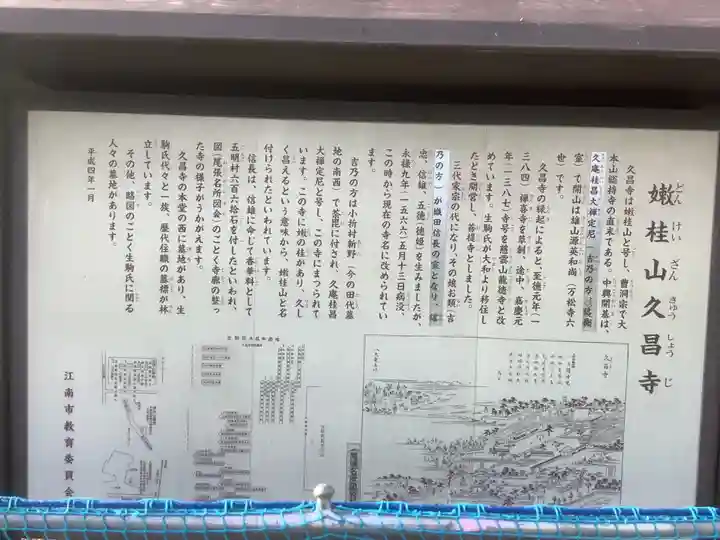 嫩桂山久昌寺
どん けい ざん きゅう しょう じ
久昌寺は嫩桂山と号し、曹洞宗で大
本山総持寺の直末である。中興開基は、
久庵桂昌大禅定尼(吉乃の方
室)で開山は雄山源英和尚(万松寺六
世)です。
久昌寺の縁起によると、至徳元年(一
三八四)禅喜寺を草創、途中、嘉慶元
年(一三八七)寺号を慈雲山龍徳寺と改
めています。生駒氏が大和より移住し
たとき開営し、菩提寺としました。
三代家宗の代になり、その娘お類(吉
乃の方)が織田信長の室となり、信
忠、信雄、五徳(徳姫)を生みましたが、
永禄九年(一五六六)五月十三日病没、
この時から現在の寺名に改められてい
ます。
吉乃の方は小折村新野(今の田代墓
地の南西)で荼毘に付され、久庵桂昌
大禅定尼と号し、この寺にまつられて
います。この寺に嫩の桂があり、久し
く昌えるという意味から、嫩桂山と名
付けられたといわれています。
信長は、信雄に命じて香華料として
五明村六百六拾石を付したといわれ、
図(尾張名所図会)のごとく寺廊の整っ
た寺の様子がうかがえます。
久昌寺の本堂の西に墓地があり、生
駒氏代々と一族、歴代住職の墓標が林
立しています。
その他、略図のごとく生駒氏に関る
人々の墓地があります。
平成四年一月
江南市教育委員会
久昌寺